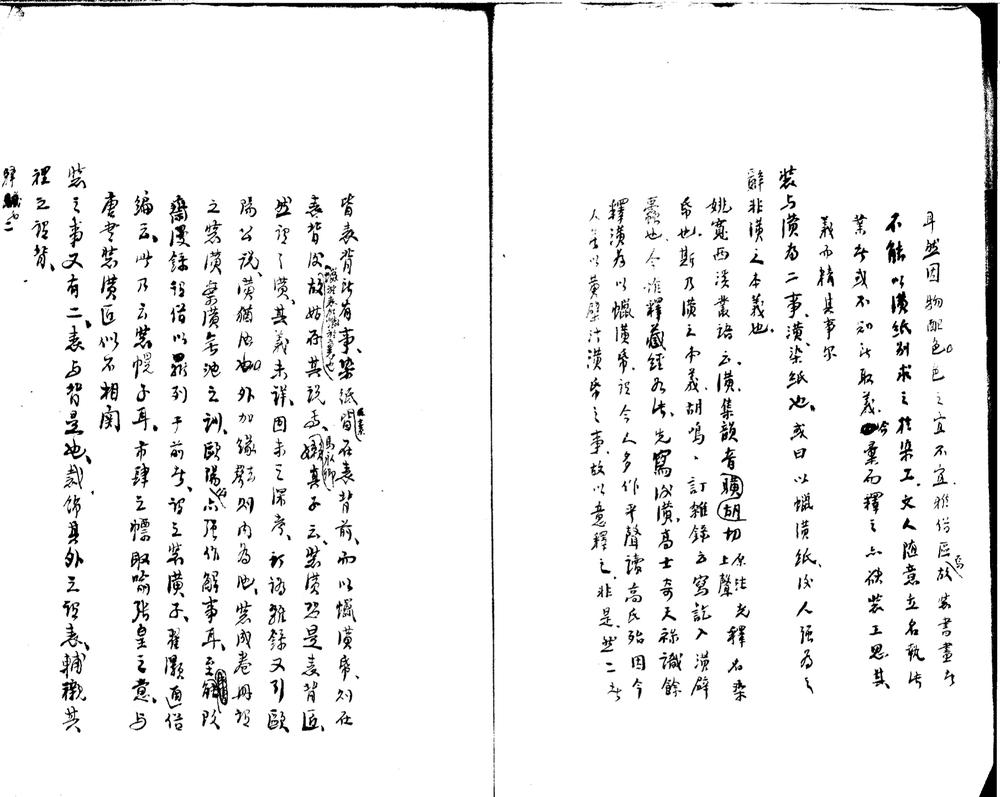 耳然因物配色色之宜不宜雅俗區焉故裝書畫者
不能以潢紙別求之於染工文人隨意立名執此
業者或不知所取義今彙而釋之亦欲裝工思其
義而精其事尔
裝与潢為二事潢染紙也或曰以蠟潢紙後人強為之
辭非潢之本義也
姚寬西溪叢語云潢集韻音曠胡切上聲原注尤釋名染
帋也斯乃潢之本義胡鳴訂雜錄云寫訖入潢辟
蠹也今惟釋藏經为然先寫後潢高士奇天祿識餘
釋潢為以蠟潢帋謂今人多作平聲讀高氏殆因今
人以黄蘗汁潢帋之事故以意釋之非是然二者
皆表背所有事染紙皆在表背前而以蠟潢帋則在
表背後故姑存其說焉真子云裝潢恐是表背匠
然謂之潢其義未詳因未之深考訂譌雜錄又引歐
陽公說潢猶池也外加緣則內為池裝成卷冊謂
之裝潢案潢無池之訓歐陽亦强作解事耳至能改
齋漫錄謂借以羅列于前者謂之裝潢子翟灝通俗
編云此乃云裝幌子耳市肆之標取喻張皇之意与
唐書裝潢匠似不相関
裝之事又有二表与背是也裁飾其外之謂表輔襯其
裡之謂背
釋職二